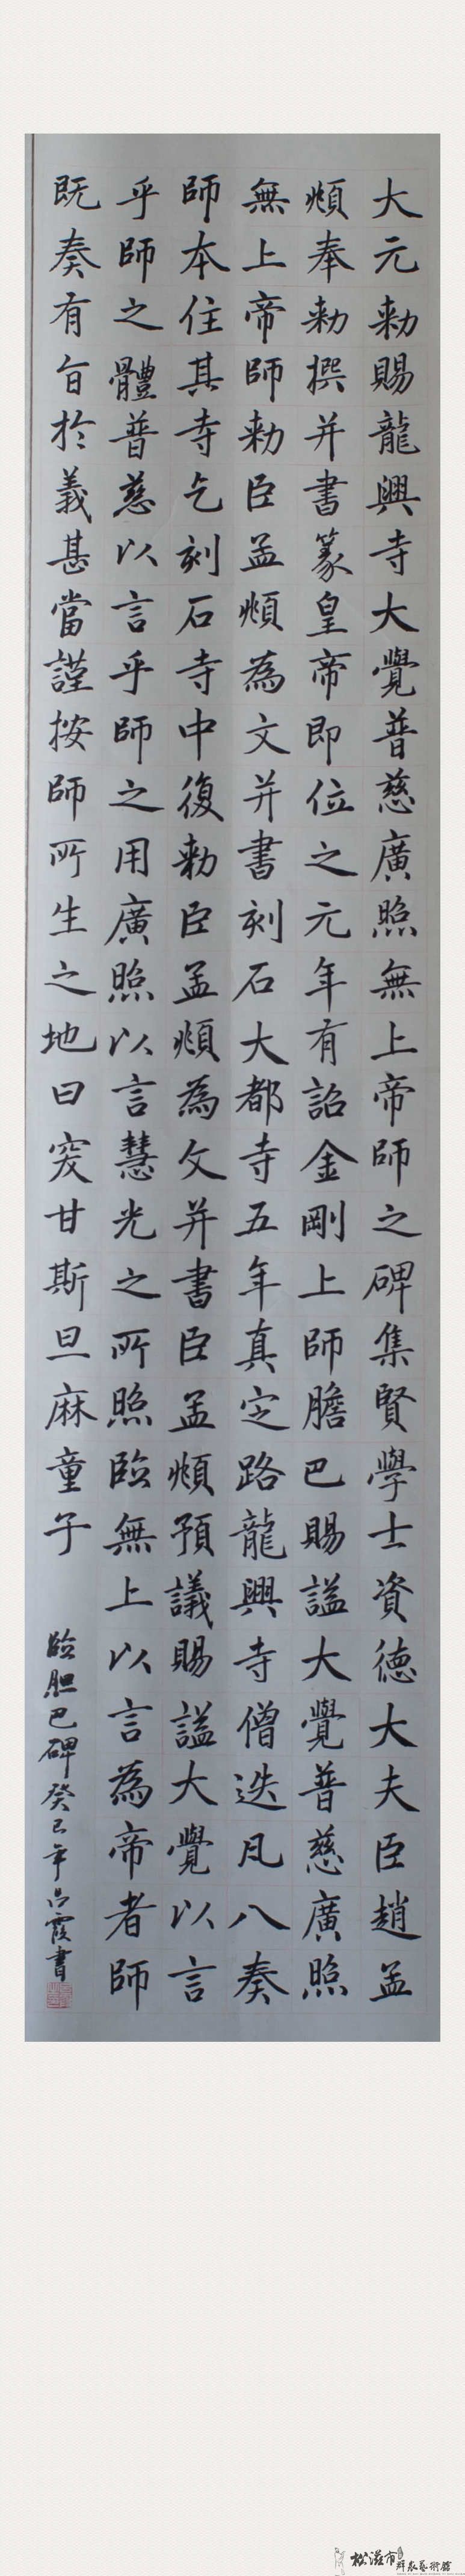 大元勅賜龍興寺大覺普慈廣照無上帝師之碑集賢學士資德大夫臣趙孟
頫奉勅撰并書篆皇帝即位之元年有詔金剛上師膽巴賜謚大覺普慈廣照
無上帝師勅臣孟頫為文并書刻石大都寺五年真定路龍興寺僧迭凡八奏
師本住其寺乞刻石寺中復勅臣孟頫為文并書臣孟頫預議賜謚大覺以言
乎師之體普慈以言乎師之用廣照以言慧光之所照臨無上以言為帝者師
既奏有旨於義甚當謹按師所生之地曰突甘斯旦麻童子
臨胆巴碑癸巳年呂霞書
松滋市
群衆藝術館